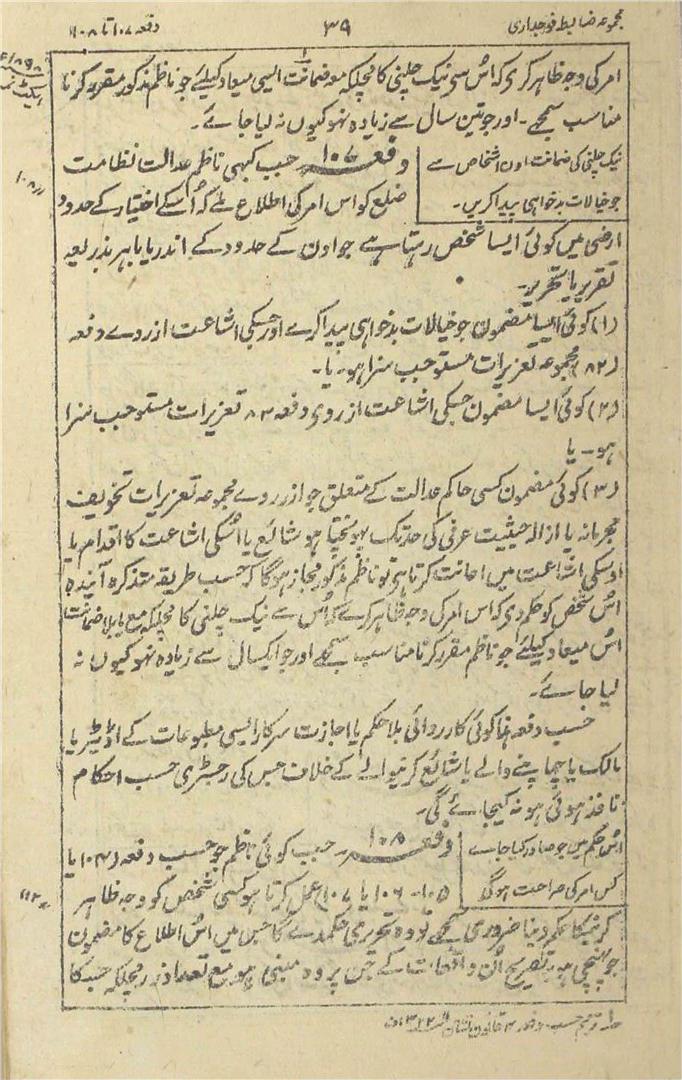 مجموعہ ضابطہ فوجداری
۳۹
دفعہ ۱۰۷ تا ۱۰۸
امر کی وجہ ظاہر کرے کہ اُس سے نیک چلنی کا مچلکہ معہ ضمانت ایسی میعاد کیلئے جو ناظم مذکور مقرر کرنا
مناسب سمجھے۔ اور جو تین سال سے زیادہ نہو کیوں نہ لیا جائے۔
نیک چلنی کی ضمانت اون اشخاص سے
جو خیالات بدخواہی پیدا کریں۔
دفعہ ۱۰۷ جب کبھی ناظم عدالت نظامت
ضلع کو اس امر کی اطلاع ملے کہ اُسکے اختیار کے حدود
ارضی میں کوئی ایسا شخص رہتا ہے جو اون کے حدود کے اندر یا باہر بذریعہ
تقریر یا تحریر۔
(۱) کوئی ایسا مضمون جو خیالات بدخواہی پیدا کرے اور جسکی اشاعت ازروے دفعہ
(۸۲) مجموعہ تعزیرات مستوجب سزا ہو۔ یا۔
(۲) کوئی ایسا مضمون جسکی اشاعت ازروی دفعہ ۸۳ تعزیرات مستوجب سزا
ہو۔ یا
(۳) کوئی مضمون کسی حاکم عدالت کے متعلق جو ازروے مجموعہ تعزیرات تخویف
مجرمانہ یا ازالہ حیثیت عرفی کی حد تک پہونچتا ہو شائع یا اُسکی اشاعت کا اقدام یا
اوسکی اشاعت میں اعانت کرتا ہو تو ناظم مذکور مجاز ہوگا کہ حسب طریقہ متذکرہ آئندہ
اُس شخص کو حکم دی کہ اس امر کی وجہ ظاہر کرے کہ اُس سے نیک چلنی کا مچلکہ مع یا بلا ضمانت
اُس میعاد کیلئے جو ناظم مقرر کرنا مناسب سمجھے اور جو ایکسال سے زیادہ نہو کیوں نہ
لیا جائے۔
حسب دفعہ ہٰذا کوئی کارروائی بلا حکم یا اجازت سرکار ایسی مطبوعات کے اڈیٹر یا
مالک یا چھاپنے والے یا شائع کرنیوالے کے خلاف جس کی رجسٹری حسب احکام
نافذہ ہوئی ہو نہ کیجائے گی۔
اُس حکم میں جو صادر کیا جاے
کس امر کی صراحت ہوگی
دفعہ ۱۰۸۔ جب کوئی ناظم جو حسب دفعہ (۱۰۴ یا
۱۰۵۔ ۱۰۶ یا ۱۰۷) عمل کرتا ہو کسی شخص کو وجہ ظاہر
کرنیکا حکم دینا ضروری سمجھے تو وہ تحریری حکم دے گا جس میں اُس اطلاع کا مضمون
جو پہنچی ہو بتصریح اُن واقعات کے جن پر وہ مبنی ہو مع تعداد زر مچلکہ جسکا